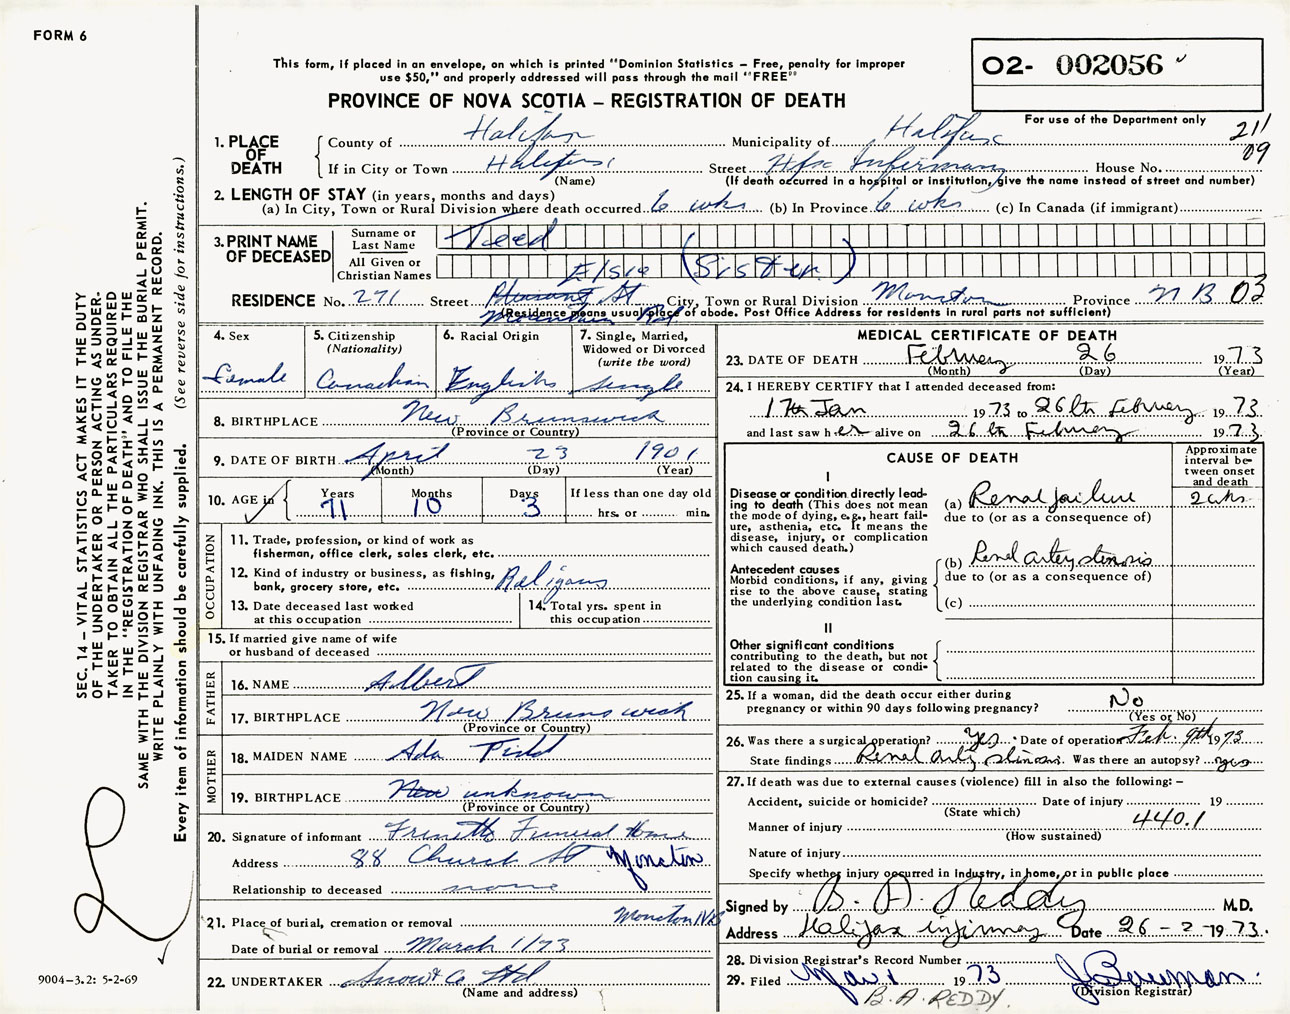 FORM 6
This form, if placed in an envelope, on which is printed "Dominion Statistics – Free, penalty for improper
use $50," and properly addressed will pass through the mail "FREE"
PROVINCE OF NOVA SCOTIA – REGISTRATION OF DEATH
O2- 002056
For use of the Department only
211
09
1. PLACE OF DEATH
County of Halifax Municipality of Halifax
If in City or Town Halifax Street Hfx Infirmary House No.
(Name) (If death occurred in a hospital or institution, give the name instead of street and number)
2. LENGTH OF STAY (in years, months and days)
(a) In City, Town or Rural Division where death occurred 6 wks (b) In Province 6 wks (c) In Canada (if immigrant)
3. PRINT NAME OF DECEASED
Surname or Last Name Teed
All Given or Christian Names Elsie (Sister)
RESIDENCE No. 271 Street Pleasant St City, Town or Rural Division Moncton Province N B 03
Mountain Rd
(Residence means usual place of abode. Post Office Address for residents in rural parts not sufficient)
4. Sex
Female
5. Citizenship (Nationality)
Canadian
6. Racial Origin
English
7. Single, Married, Widowed or Divorced (write the word)
Single
8. BIRTHPLACE New Brunswick
(Province or Country)
9. DATE OF BIRTH April 23 1901
(Month) (Day) (Year)
10. AGE in Years 71 Months 10 Days 3 If less than one day old
hrs. or min.
OCCUPATION
11. Trade, profession, or kind of work as
fisherman, office clerk, sales clerk, etc.
12. Kind of industry or business, as fishing,
bank, grocery store, etc. Religous
13. Date deceased last worked
at this occupation
14. Total yrs. spent in
this occupation
15. If married give name of wife
or husband of deceased
FATHER
16. NAME Albert
17. BIRTHPLACE New Brunswick
(Province or Country)
MOTHER
18. MAIDEN NAME Ada Tidd
19. BIRTHPLACE New unknown
(Province or Country)
20. Signature of informant Frenette Funeral Home
Address 88 Church St Moncton
Relationship to deceased none
21. Place of burial, cremation or removal Moncton NB
Date of burial or removal March 1/73
22. UNDERTAKER Snow & Co Ltd
(Name and address)
MEDICAL CERTIFICATE OF DEATH
23. DATE OF DEATH February 26 1973
(Month) (Day) (Year)
24. I HEREBY CERTIFY that I attended deceased from:
17th Jan 1973 to 26th February 1973
and last saw her alive on 26th February 1973
CAUSE OF DEATH
Approximate interval between onset and death
I
Disease or condition directly lead-
ing to death (This does not mean
the mode of dying, e.g., heart fail-
ure, asthenia, etc. It means the
disease, injury, or complication
which caused death.)
(a) Renal failure 2 wks
due to (or as a consequence of)
Antecedent causes
Morbid conditions, if any, giving
rise to the above cause, stating
the underlying condition last.
(b) Renal artery stenosis
due to (or as a consequence of)
(c)
II
Other significant conditions
contributing to the death, but not
related to the disease or condi-
tion causing it.
25. If a woman, did the death occur either during
pregnancy or within 90 days following pregnancy? No
(Yes or No)
26. Was there a surgical operation? Yes Date of operation Feb. 9th 1973
State findings Renal arty stenosis Was there an autopsy? yes
27. If death was due to external causes (violence) fill in also the following: –
Accident, suicide or homicide? Date of injury 19
(State which) 440.1
Manner of injury
(How sustained)
Nature of injury
Specify whether injury occurred in industry, in home, or in public place
Signed by B. A. Reddy M.D.
Address Halifax infirmary Date 26 – 2 – 1973.
28. Division Registrar's Record Number
29. Filed Mar 1 1973 J Bowman
(Division Registrar)
B. A. REDDY.
SEC. 14 – VITAL STATISTICS ACT MAKES IT THE DUTY
OF THE UNDERTAKER OR PERSON ACTING AS UNDER-
TAKER TO OBTAIN ALL THE PARTICULARS REQUIRED
IN THE "REGISTRATION OF DEATH" AND TO FILE THE
SAME WITH THE DIVISION REGISTRAR WHO SHALL ISSUE THE BURIAL PERMIT.
WRITE PLAINLY WITH UNFADING INK. THIS IS A PERMANENT RECORD.
Every item of information should be carefully supplied. (See reverse side for instructions.)
9004–3.2: 5-2-69